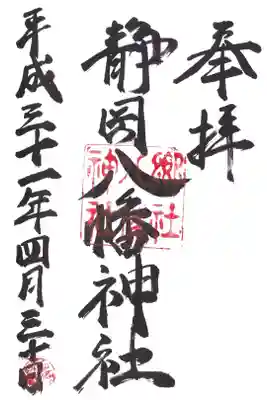 奉拝
静岡八幡神社
平成三十一年四月三十日
郷社
神社